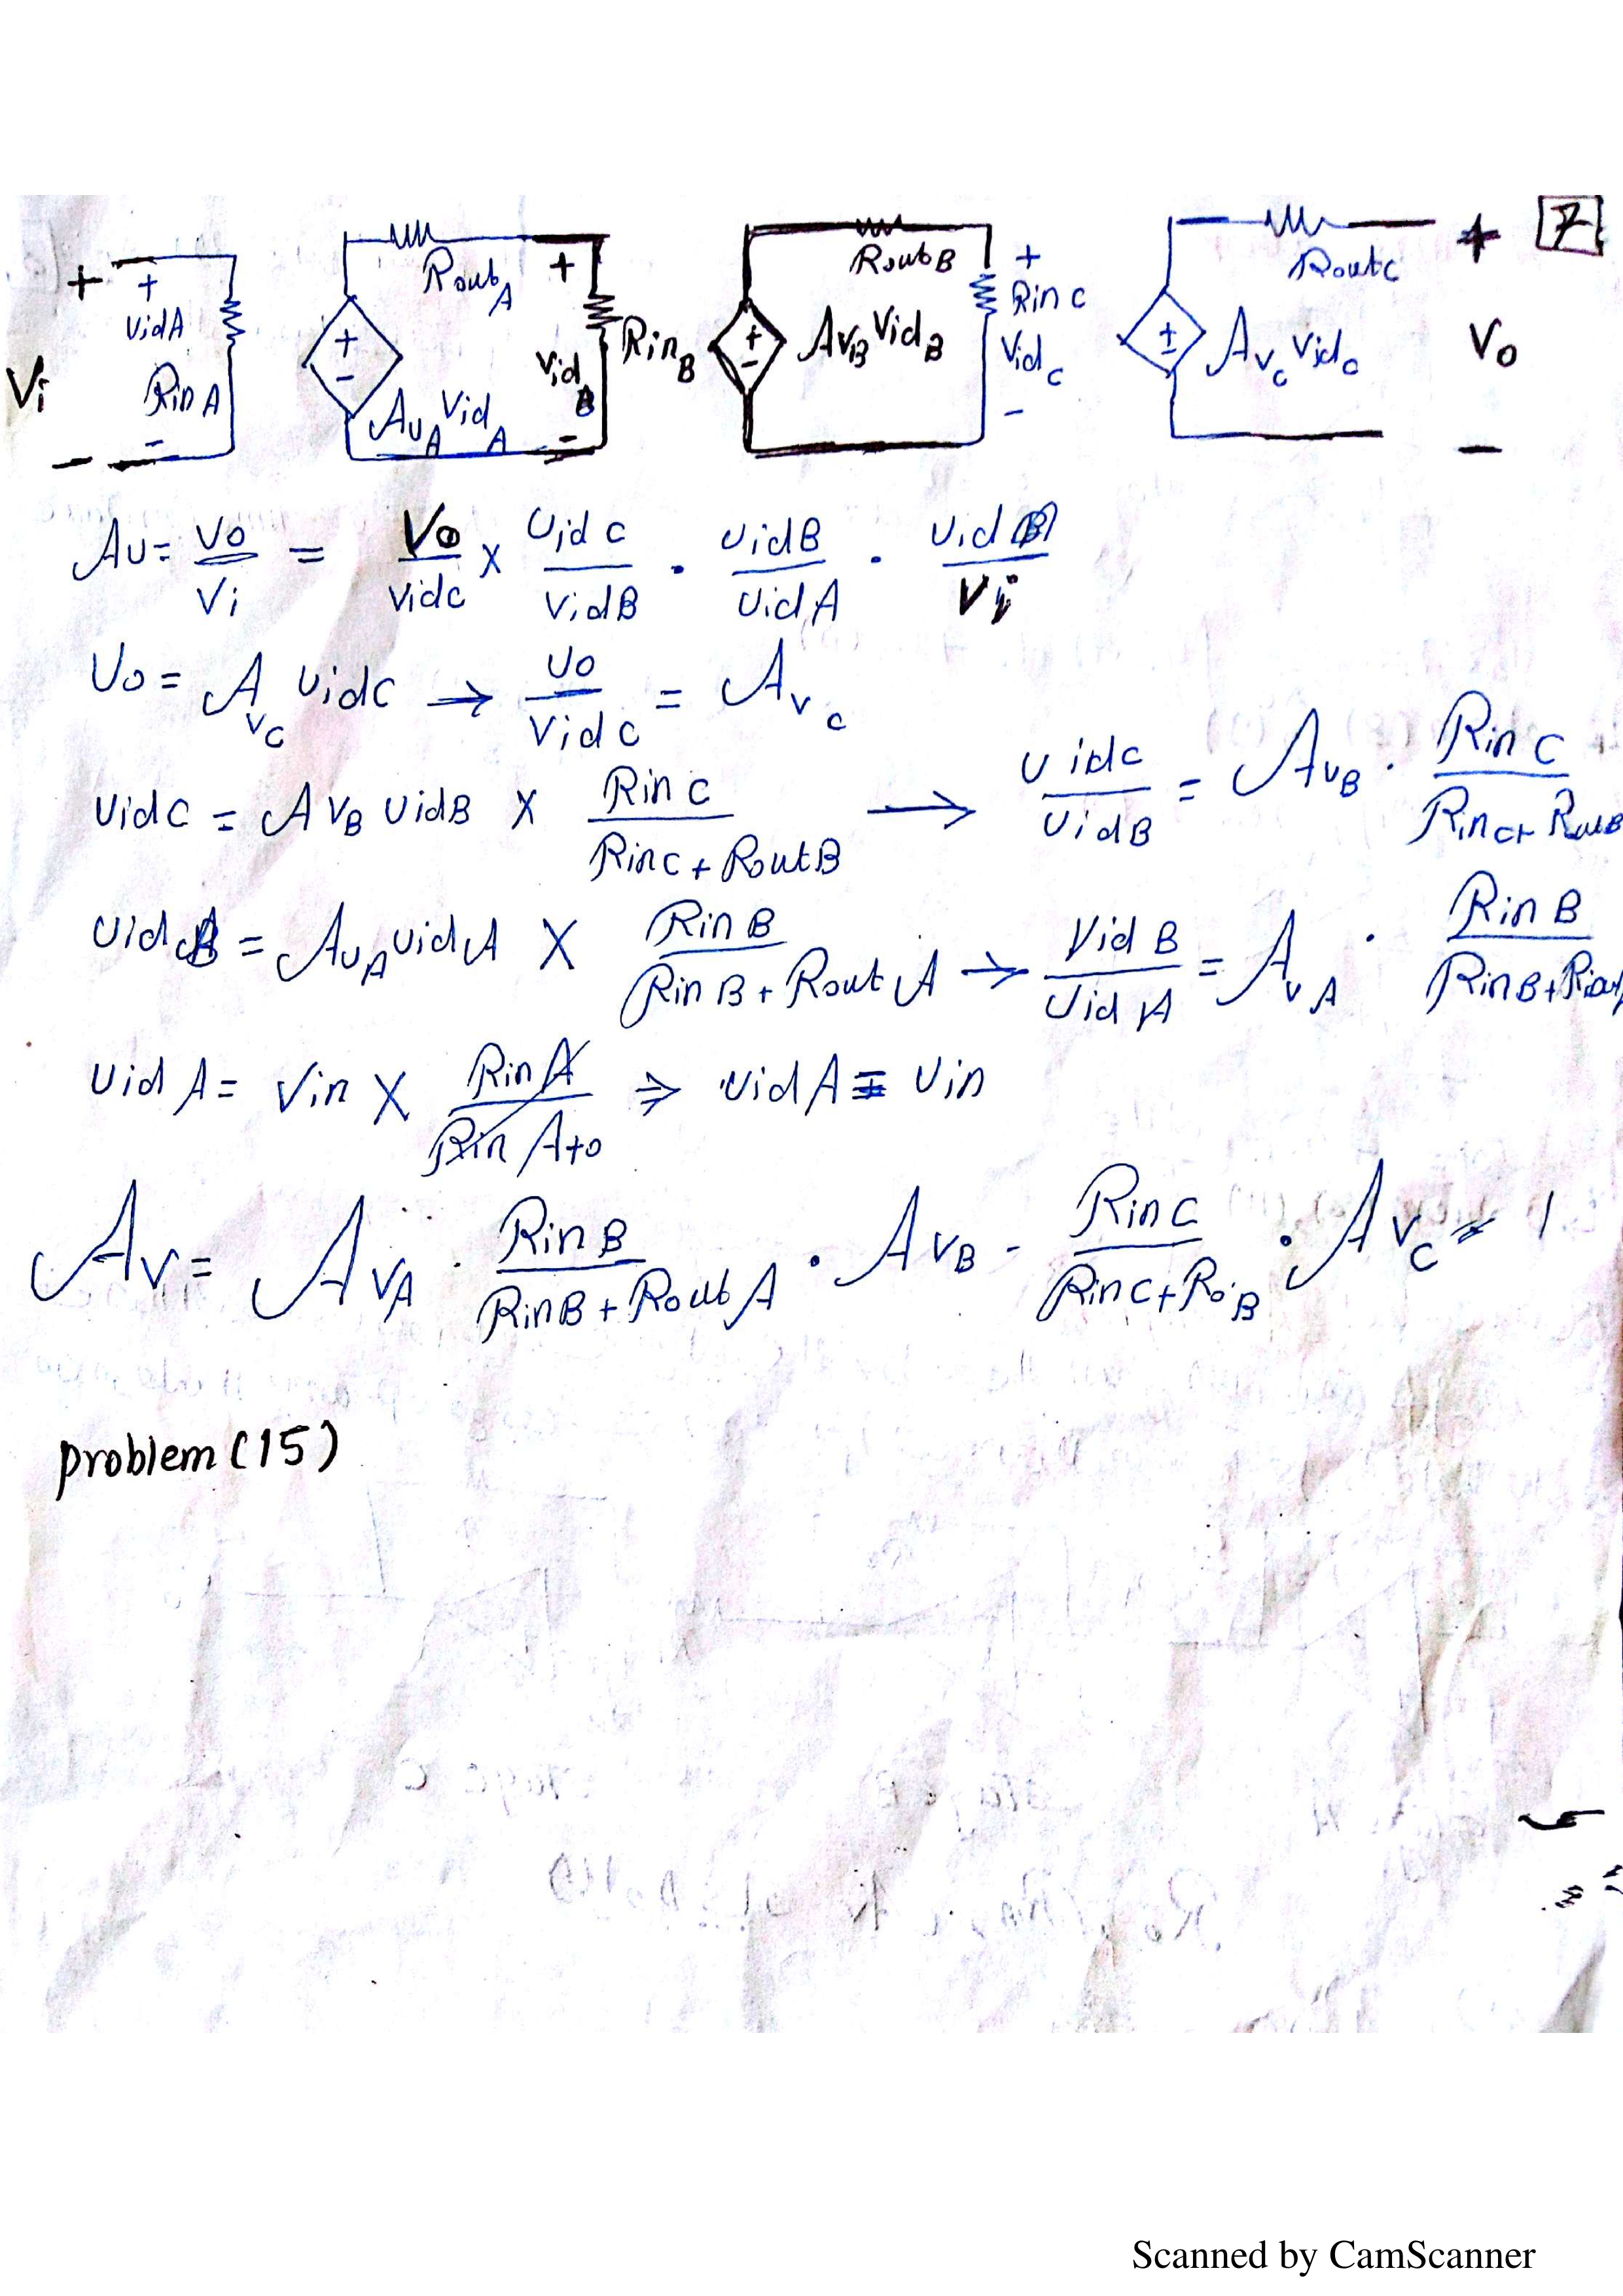 7
+ + vidA Rin A - Vi -
Rout A + - Av_A Vid_A
+ Vid_B - Rin_B
Rout B + - Av_B Vid_B
+ Rin C Vid_C -
Rout C ± A_vc vid_c + Vo -
Av = Vo/Vi = Vo/vidc × vidC/vidB . vidB/vidA . /Vi
Vo = A_vc vidC → vo/vidC = A_vc
vidC = A v_B vidB × Rin C/(RinC + RoutB) → vidC/vidB = A_vB . Rin C/
vid B = A_vA vidA × Rin B/(Rin B + Rout A) → Vid B/vid A = A_vA . Rin B/
vid A = Vin × Rin A/(Rin A+0) ⇒ vid A = vin
Av = A_vA . Rin B/(RinB + Rout A) . A_vB - Rin C/(RinC + Ro_B) . A_vc
problem (15)
Scanned by CamScanner